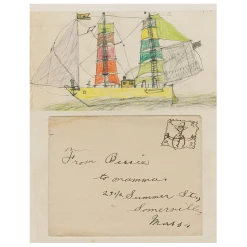 From Bessie
to mamma
Summer St.,
Somerville,
Mass.